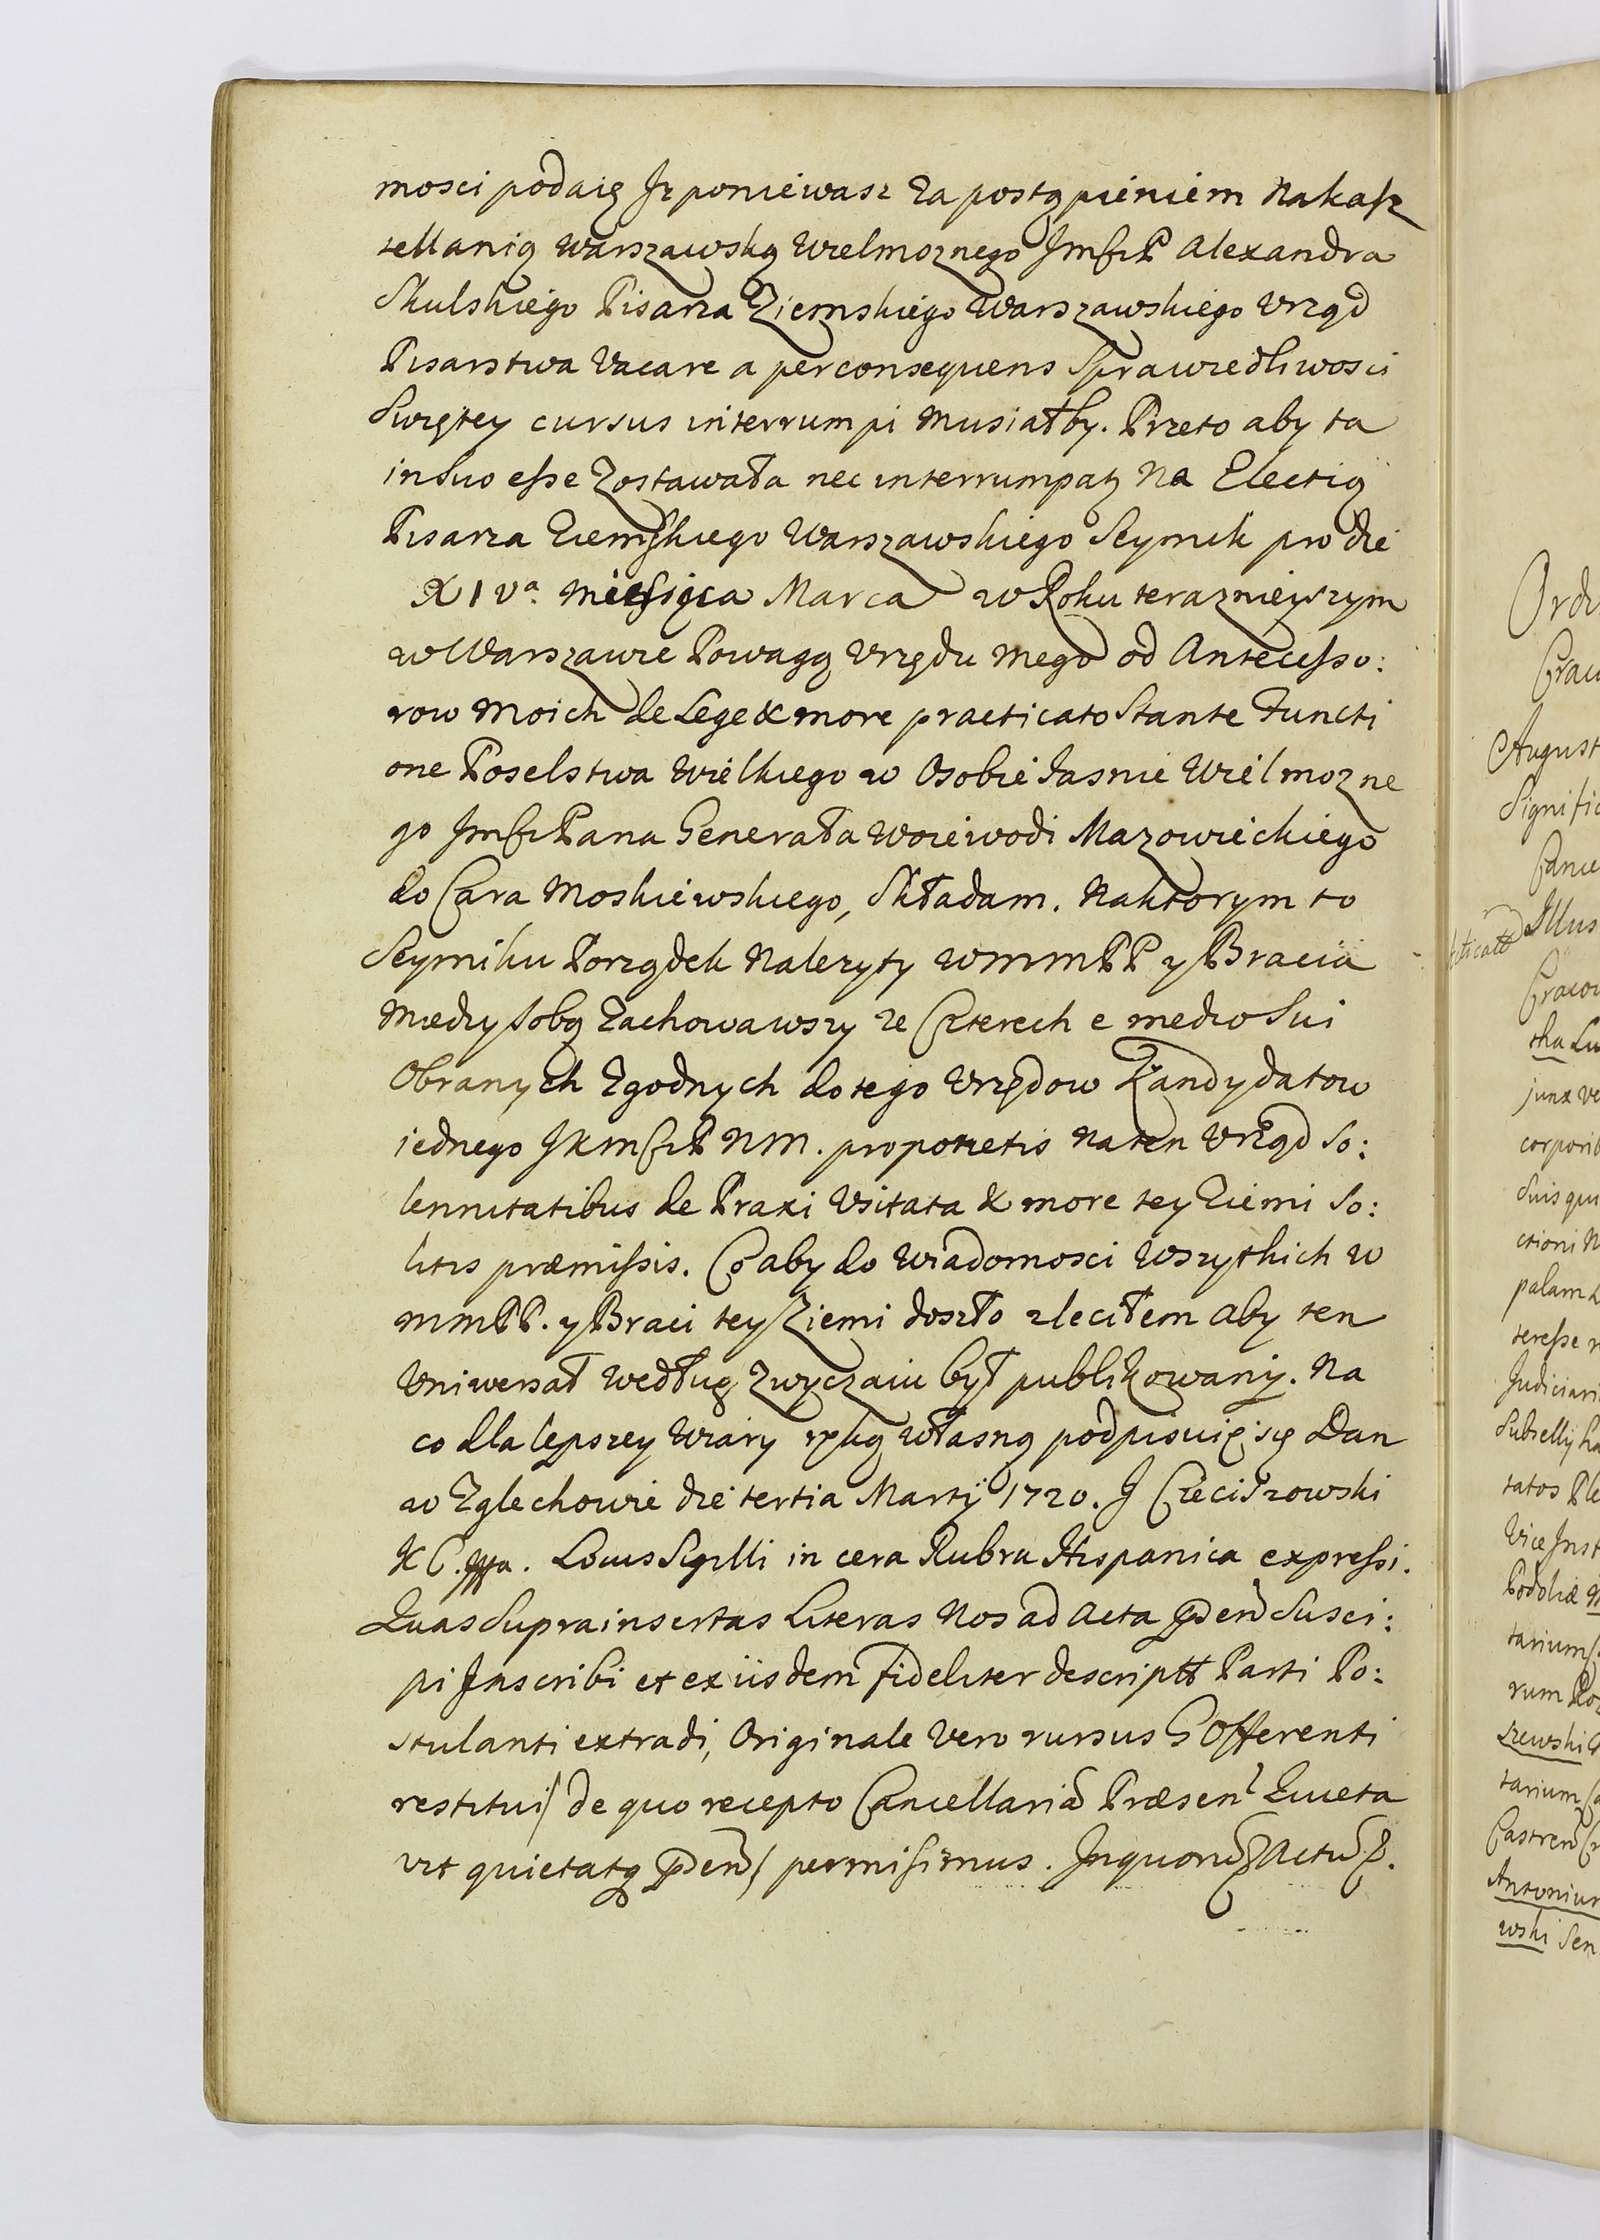 mosci podaię Iz poniewasz Za postąpieniem Nakasz
tellanią Warszawską Wielmoznego ImśćP Alexandra
Skulskiego Pisarza Ziemskiego Warszawskiego Vrząd
Pisarstwa Vacare a perconsequens Sprawiedliwosci
Swiętey cursus interrumpi Musiałby. Przeto aby ta
in Suo esse Zostawała nec interrumpatz Na Electią
Pisarza Ziemskiego Warszawskiego Seymik pro die
XIVa. miesięca Marca w Roku terazniejszym
w Warszawie Powagą Vrzędu mego od Antecesso:
row Moich de Lege & more practicato Stante Functi
one Poselstwa Wielkiego w Osobie Jasnie Wielmozne
go Imśći Pana Generała Woiewodi Mazowieckiego
do Cara Moskiewskiego, Składam. Naktorym to
Seymiku Porządek Nalezyty WMMPP y Bracia
Miedzy Sobą Zachowawszy ze Czterech e medio Sui
Obranych Zgodnych do tego Vrzędow Kandydatow
iednego JKMśćiP NM. Na ten Vrząd So:
lennitatibus de Praxi Vsitata & more tey Ziemi So:
litis præmissis. Co aby do Wiadomosci Wszytkich W
MMPP. y Braci tey Ziemi doszło zleciłem aby ten
Vniwersał według Zwyczaiu był publikowany. Na
co dla lepszey Wiary ręką własną podpisuię się Dan
w Zglechowie die tertia Martij 1720. J Cieciszowski
K C. Locus Sigilli in cera Rubra Hispanica expressi.
Quas Suprainsertas Literas Nos ad Acta Suscî:
pi Inscribi et ex iisdem fideliter descriptt Parti Po:
stulanti extradi, Originale Vero rursus Offerenti
restitui/ de quo recepto Cancellariã Præsen Quieta
vit quietatq / permisimus. In quorũ Actũ